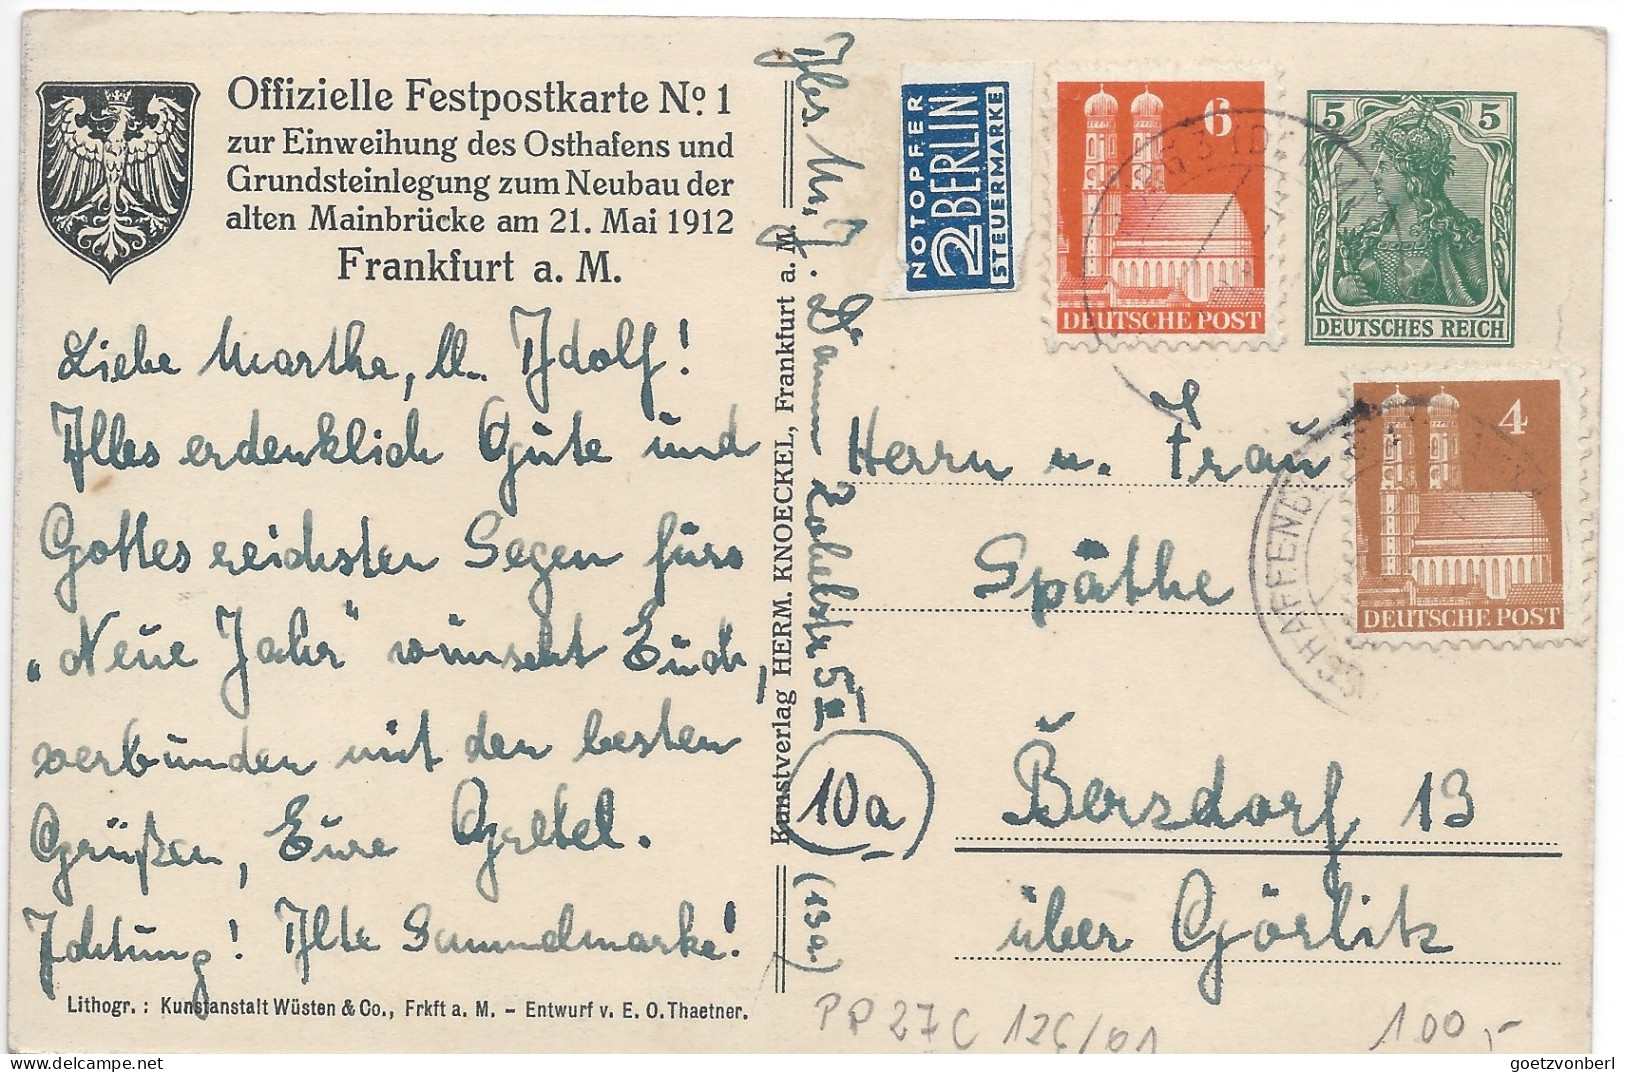 Offizielle Festpostkarte Nº 1
zur Einweihung des Osthafens und
Grundsteinlegung zum Neubau der
alten Mainbrücke am 21. Mai 1912
Frankfurt a. M.
Liebe Martha, u. Adolf!
Alles erdenklich Gute und
Gottes reichsten Segen fürs
„Neue Jahr" wünscht Euch,
verbunden mit den besten
Grüßen, Eure Gretel.
Achtung! Alte Sammelmarke!
Lithogr.: Kunstanstalt Wüsten & Co., Frkft a. M. – Entwurf v. E. O. Thaetner.
Kunstverlag HERM. KNOECKEL, Frankfurt a. M.
5 II
(13a.)
NOTOPFER
2 BERLIN
STEUERMARKE
6
DEUTSCHE POST
5 5
DEUTSCHES REICH
4
DEUTSCHE POST
SCHAFFENB
Herrn u. Frau
Späthe
10a
Bersdorf 13
über Görlitz
PP 27 C 126/01
100,-
goetzvonberl